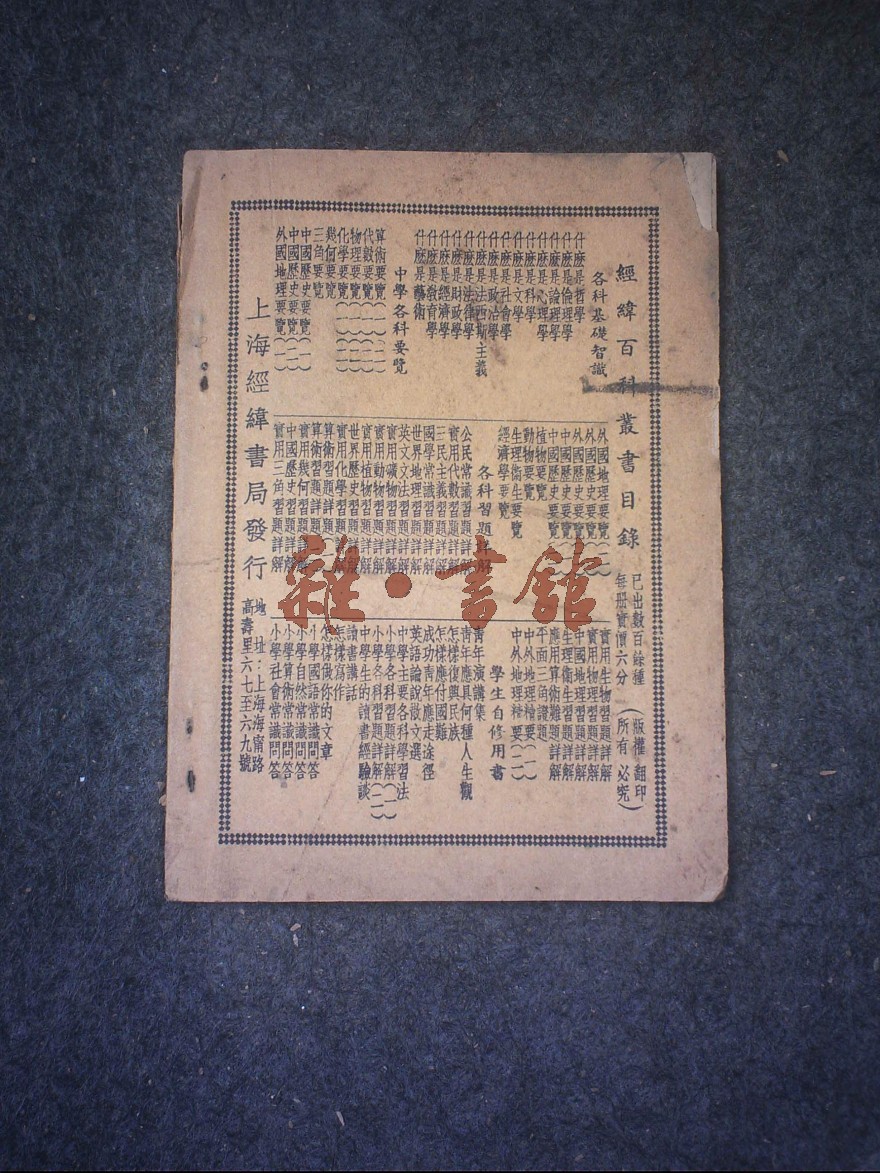 經緯百科叢書目錄
已出數百餘種
每册實價六分
(版權所有 翻印必究)
各科基礎智識
什麽是哲學
什麽是倫理學
什麽是論理學
什麽是心理學
什麽是科學
什麽是文學
什麽是社會學
什麽是政治學
什麽是法西斯主義
什麽是法律學
什麽是經濟學
什麽是財政學
什麽是教育學
什麽是藝術
中學各科要覽
算術要覽
代數要覽(一)(二)
物理要覽(一)(二)
化學要覽(一)(二)
幾何要覽
三角要覽
中國歷史要覽(一)
中國歷史要覽(二)
外國地理要覽(一)
外國地理要覽(二)
外國歷史要覽(一)
外國歷史要覽
中國歷史要覽
中國歷史要覽
植物要覽
動物要覽
生理衛生要覽
經濟學要覽
各科習題詳解
公民常識習題詳解
實用代數習題詳解
三民主義習題詳解
國學常識習題詳解
世界地理習題詳解
英文文法習題詳解
實用礦物習題詳解
實用動物習題詳解
實用植物習題詳解
世界歷史習題詳解
實用化學習題詳解
算術習題詳解
算術習題詳解
實用幾何習題詳解
中國歷史習題詳解
實用三角習題詳解
實用生物習題詳解
實用物理習題詳解
中國地理習題詳解
生理衛生習題詳解
應用算術難題詳解
平面三角證題
中外地理精要(一)
中外地理精要(二)
學生自修用書
青年演講集
青年應具何種人生觀
怎樣復興民族
怎樣應付國難
成功靑年應走途徑
英語論說散文選
中學主要各科學習法
小學各科習題詳解(一)
小學各科習題詳解(二)
中學生的讀書經驗談
讀書講話
怎樣寫作
怎樣做你的文章
小學國語常識問答
小學自然常識問答
小學算術常識問答
小學社會常識問答
上海經緯書局發行
地址:上海海甯路
高壽里六七至六九號
雜·書館